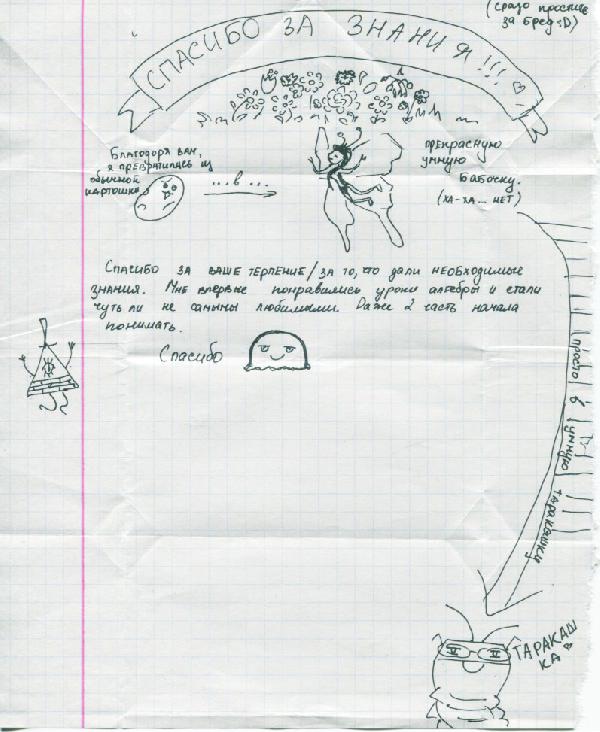 (сразу простите
за бред :D)
СПАСИБО ЗА ЗНАНИЯ!!!
Благодоря вам,
я превратилась из
обычной
картошки
...в...
прекрасную
умную
бабочку.
(ха-ха... нет)
Спасибо за ваше терпение/за то, что дали необходимые
знания. Мне впервые понравились уроки алгебры и стали
чуть ли не самыми любимыми. Даже 2 часть начала
понимать.
Спасибо
просто в умную таракашку
ТАРАКАШ
КА